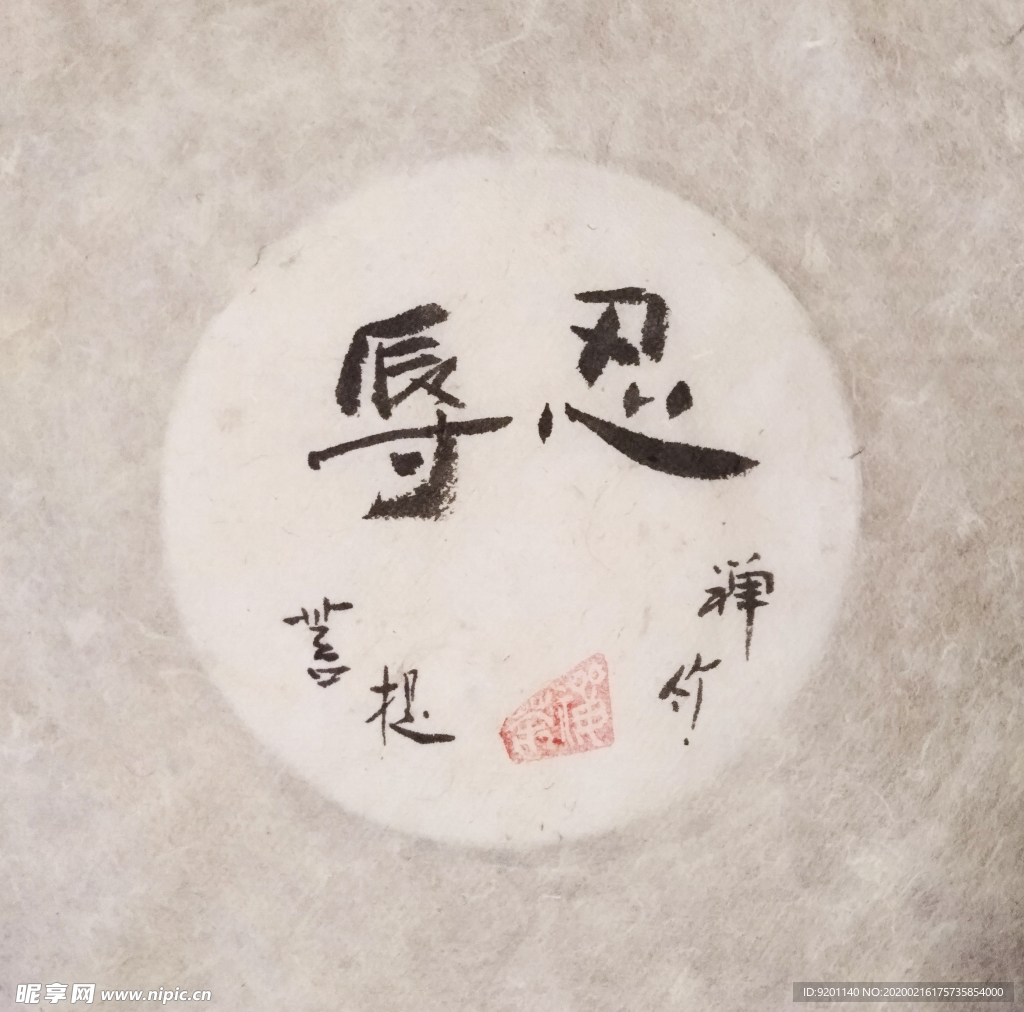 忍辱
禅
菩提
昵享网 www.nipic.cn
ID:9201140 NO:20200216175735854000